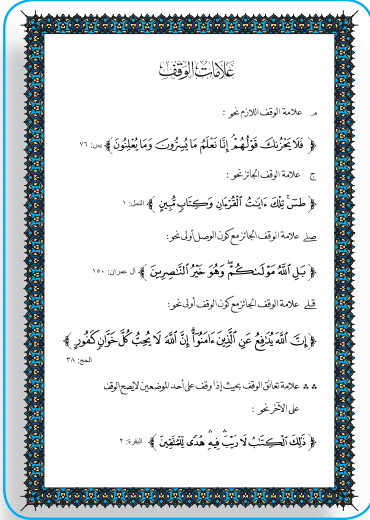 علامات الوقف
مـ علامة الوقف اللازم نحو :
﴿ فَلَا يَحْزُنكَ قَوْلُهُمْۘ إِنَّا نَعْلَمُ مَا يُسِرُّونَ وَمَا يُعْلِنُونَ ﴾ يس: ٧٦
ج علامة الوقف الجائز نحو :
﴿ طسٓۚ تِلْكَ ءَايَٰتُ ٱلْقُرْءَانِ وَكِتَابٍ مُّبِينٍ ﴾ النمل: ١
صلے علامة الوقف الجائز مع كون الوصل أولى نحو:
﴿ بَلِ ٱللَّهُ مَوْلَىٰكُمْۖ وَهُوَ خَيْرُ ٱلنَّٰصِرِينَ ﴾ ال عمران: ١٥٠
قلے علامة الوقف الجائز مع كون الوقف أولى نحو:
﴿ إِنَّ ٱللَّهَ يُدَٰفِعُ عَنِ ٱلَّذِينَ ءَامَنُوٓا۟ۗ إِنَّ ٱللَّهَ لَا يُحِبُّ كُلَّ خَوَّانٍ كَفُورٍ ﴾
الحج: ٣٨
ۛ ۛ علامة تعانق الوقف بحيث إذا وقف على أحد الموضعين لا يصح الوقف
على الآخر نحو :
﴿ ذَٰلِكَ ٱلْكِتَٰبُ لَا رَيْبَۛ فِيهِۛ هُدًى لِّلْمُتَّقِينَ ﴾ البقرة: ٢